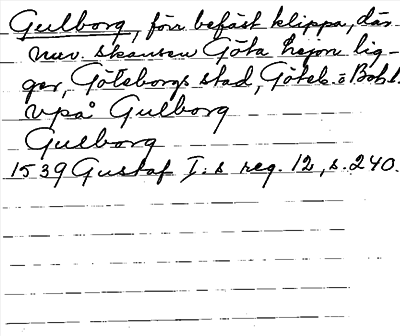 Gulborg, förr befäst klippa, där
nuv. skansen Göta lejon lig-
ger, Göteborgs stad, Göteb. o Bohl.
upå Gulborg
Gulborg
1539 Gustaf I:s reg. 12, s. 240.